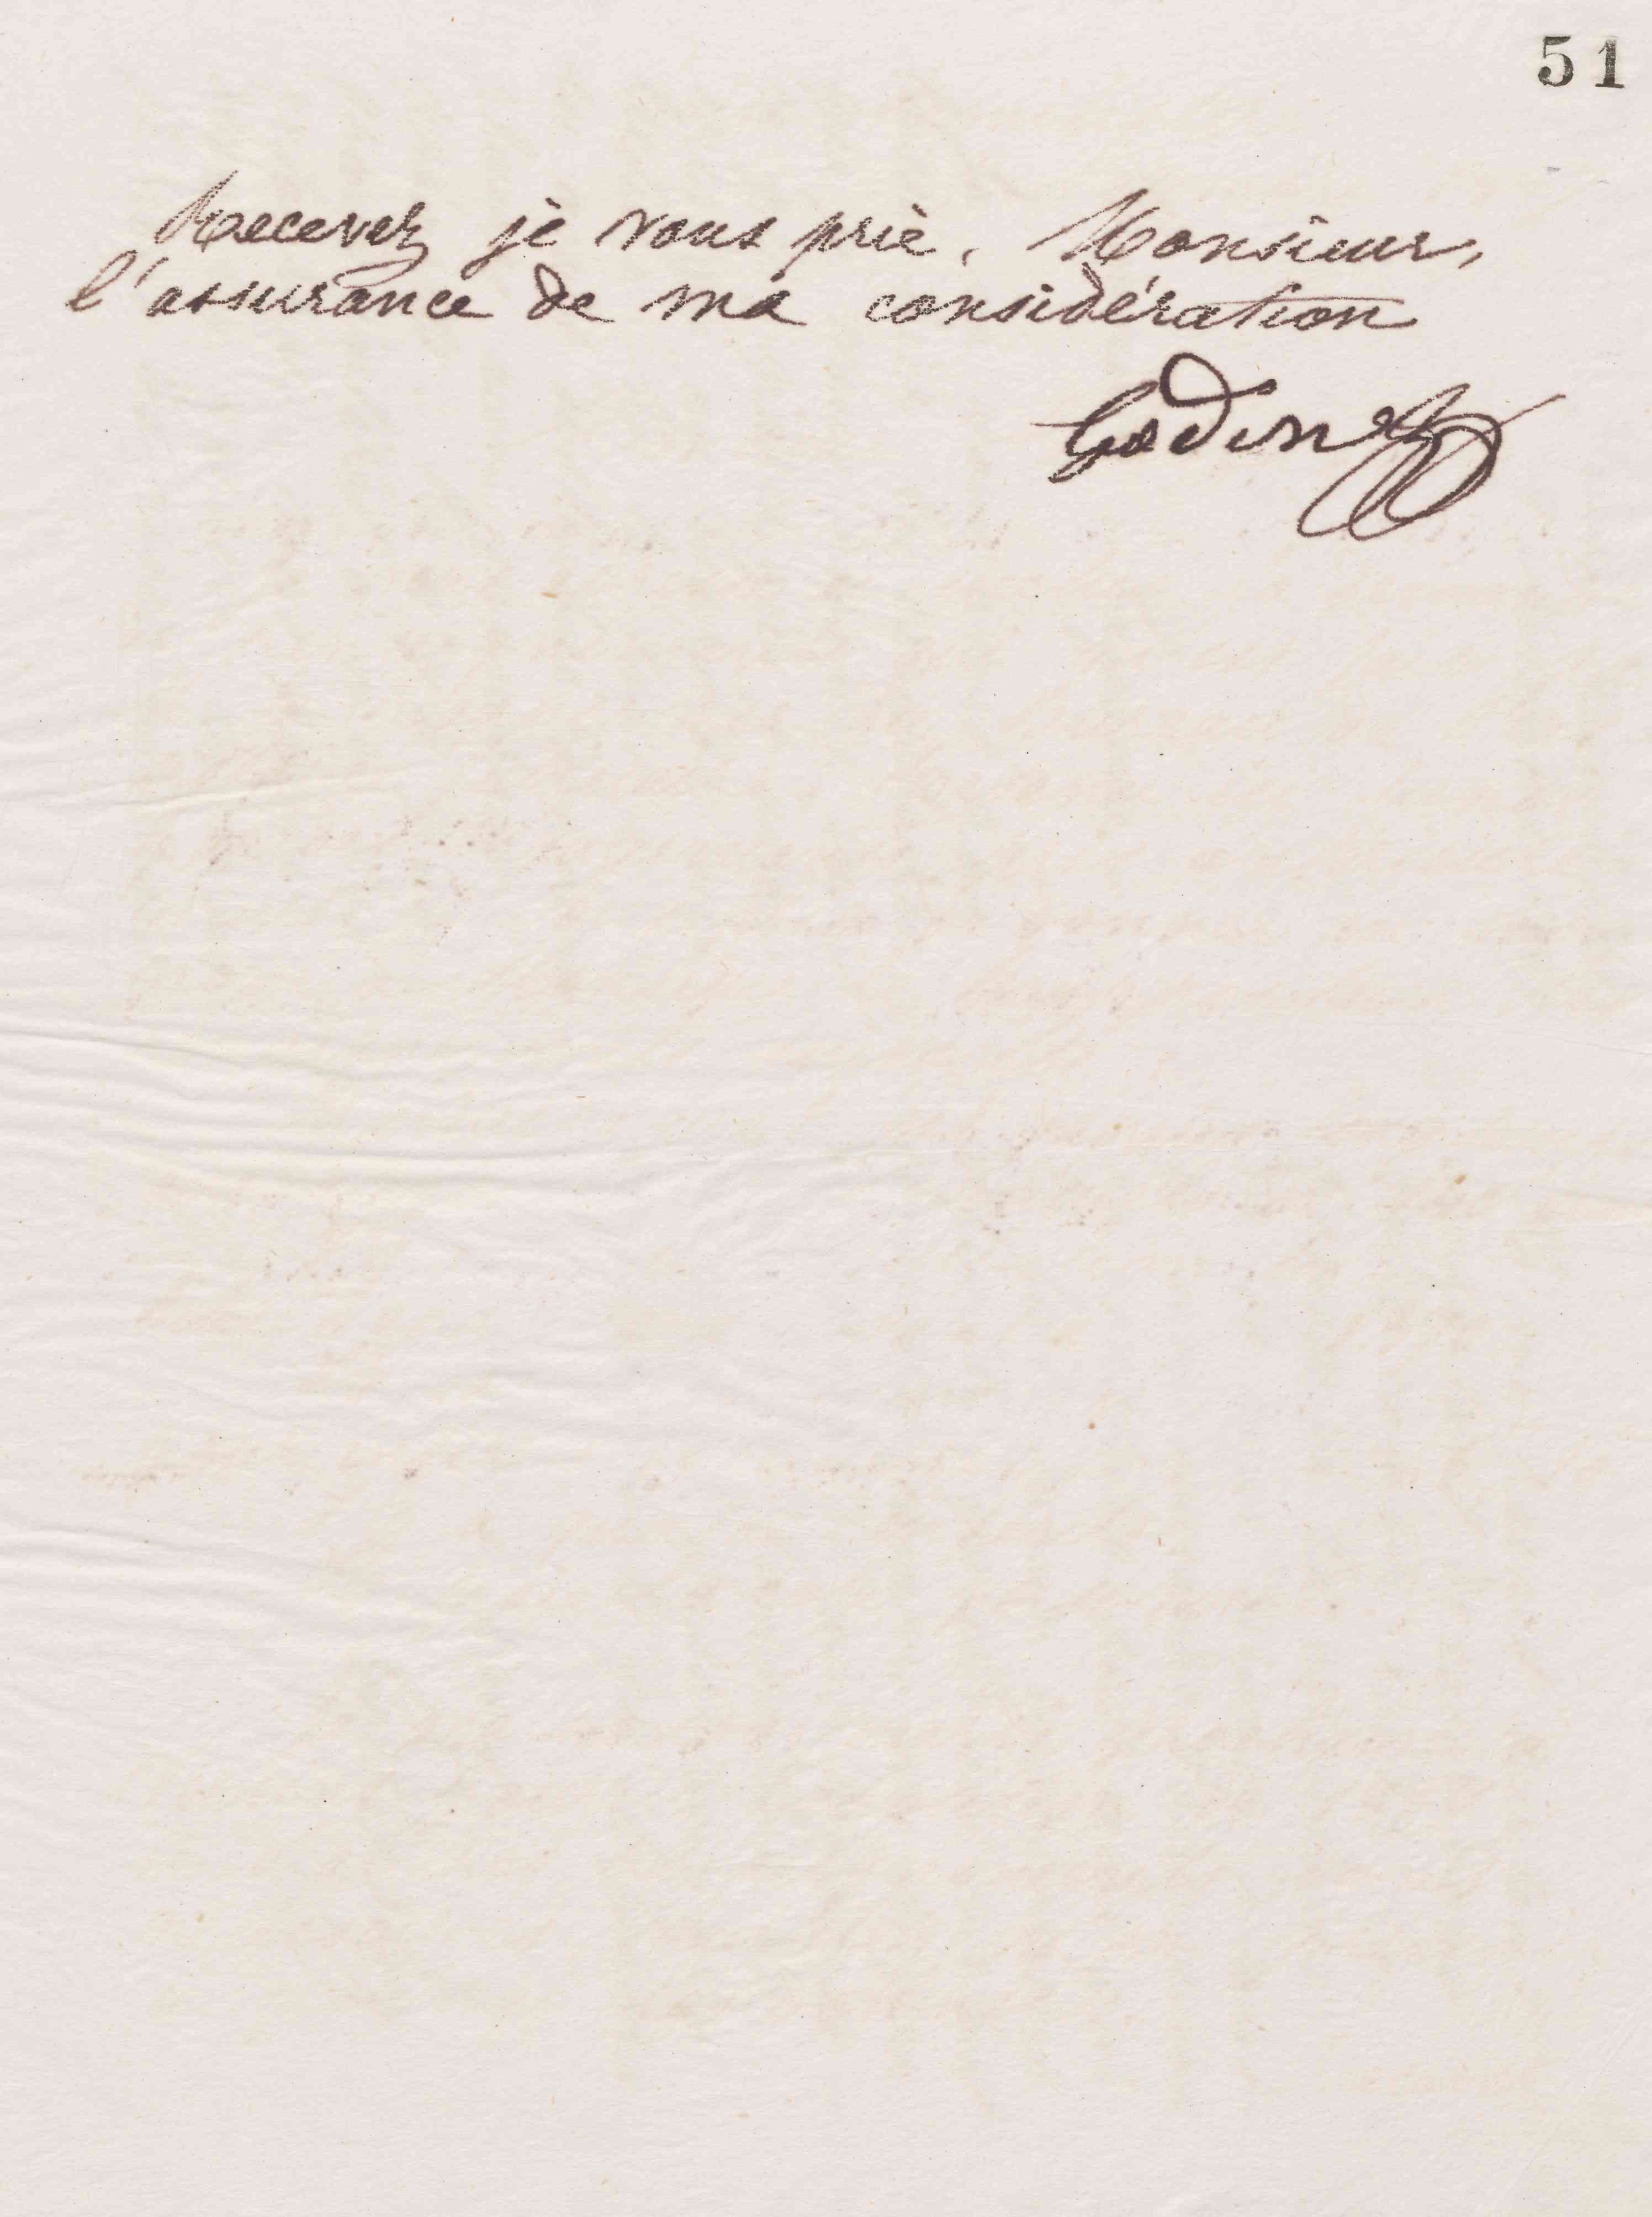 51
Recevez je vous prie, Monsieur,
l'assurance de ma considération
Godin